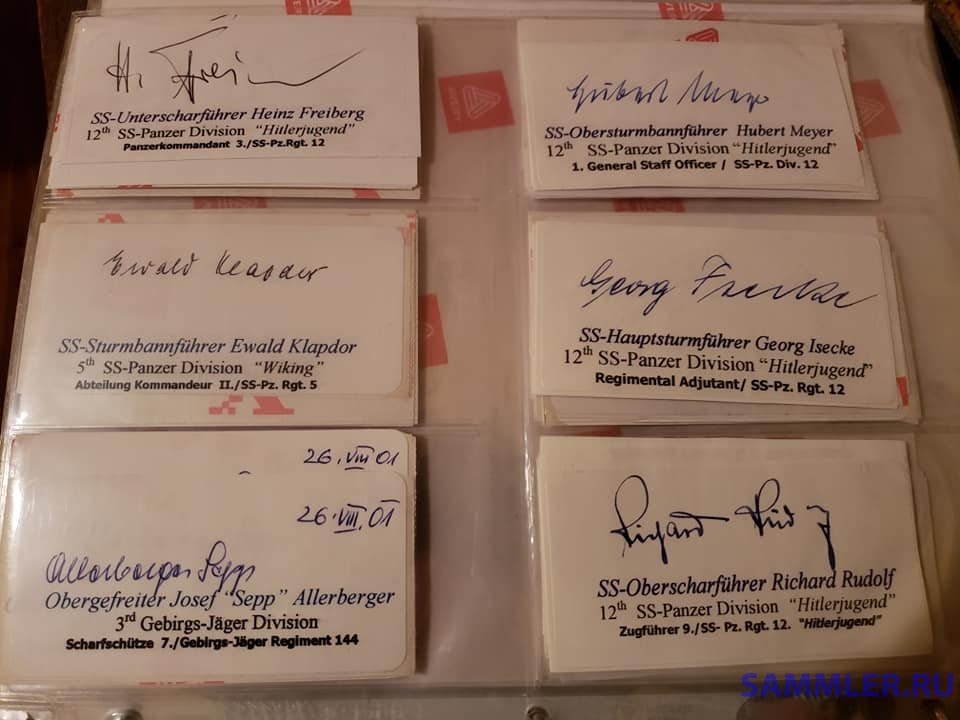 H. Frei
SS-Unterscharführer Heinz Freiberg
12th SS-Panzer Division "Hitlerjugend"
Panzerkommandant 3./SS-Pz.Rgt. 12
Hubert Meyer
SS-Obersturmbannführer Hubert Meyer
12th SS-Panzer Division "Hitlerjugend"
1. General Staff Officer / SS-Pz. Div. 12
Ewald Klapdor
SS-Sturmbannführer Ewald Klapdor
5th SS-Panzer Division "Wiking"
Abteilung Kommandeur II./SS-Pz. Rgt. 5
Georg Isecke
SS-Hauptsturmführer Georg Isecke
12th SS-Panzer Division "Hitlerjugend"
Regimental Adjutant/ SS-Pz. Rgt. 12
26.VIII 01
26.VIII.01
Allerberger Sepp
Obergefreiter Josef "Sepp" Allerberger
3rd Gebirgs-Jäger Division
Scharfschütze 7./Gebirgs-Jäger Regiment 144
Richard Rudolf
SS-Oberscharführer Richard Rudolf
12th SS-Panzer Division "Hitlerjugend"
Zugführer 9./SS- Pz. Rgt. 12. "Hitlerjugend"
SAMMLER.RU